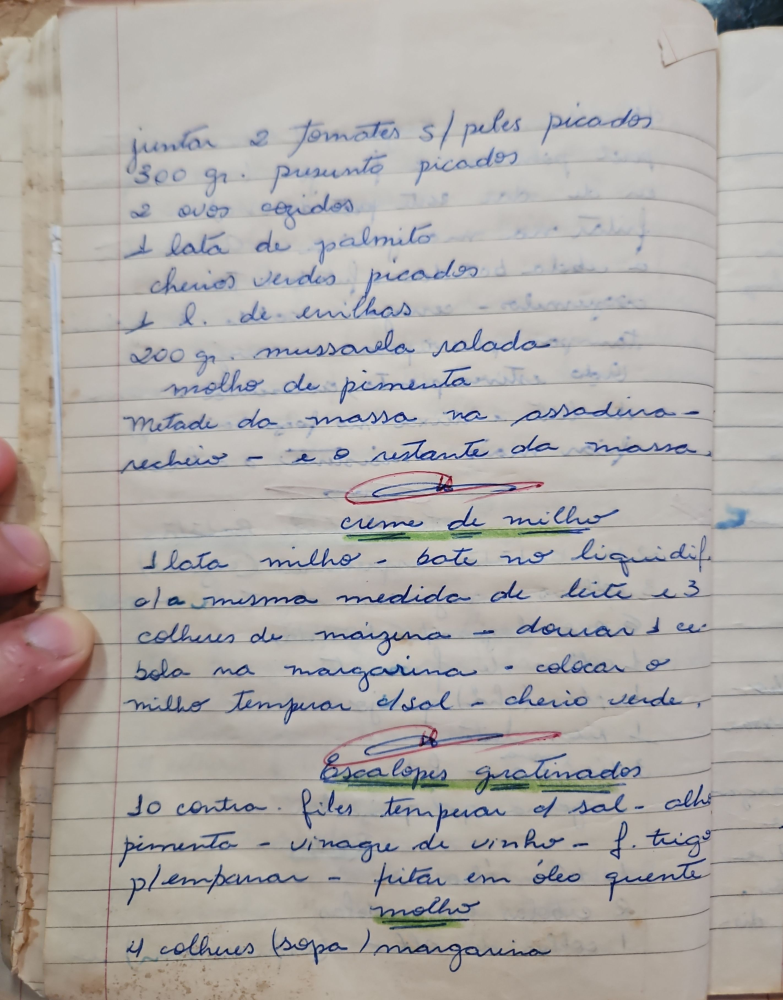 juntar 2 tomates s/peles picados
300 gr. presunto picados
2 ovos cozidos
1 lata de palmito
cheios verdes picados
1 l. de ervilhas
200 gr. mussarela ralada
molho de pimenta
Metade da massa na assadeira -
recheio - e o restante da massa.
creme de milho
1 lata milho - bate no liquidif.
c/a mesma medida de leite e 3
colheres de máizena - dourar 1 ce-
bola na margarina - colocar o
milho temperar c/sal - cheio verde.
Escalopes gratinados
10 contra-filés temperar c/ sal - alho
pimenta - vinagre de vinho - f. trigo
p/empanar - fritar em óleo quente
molho
4 colheres (sopa) margarina